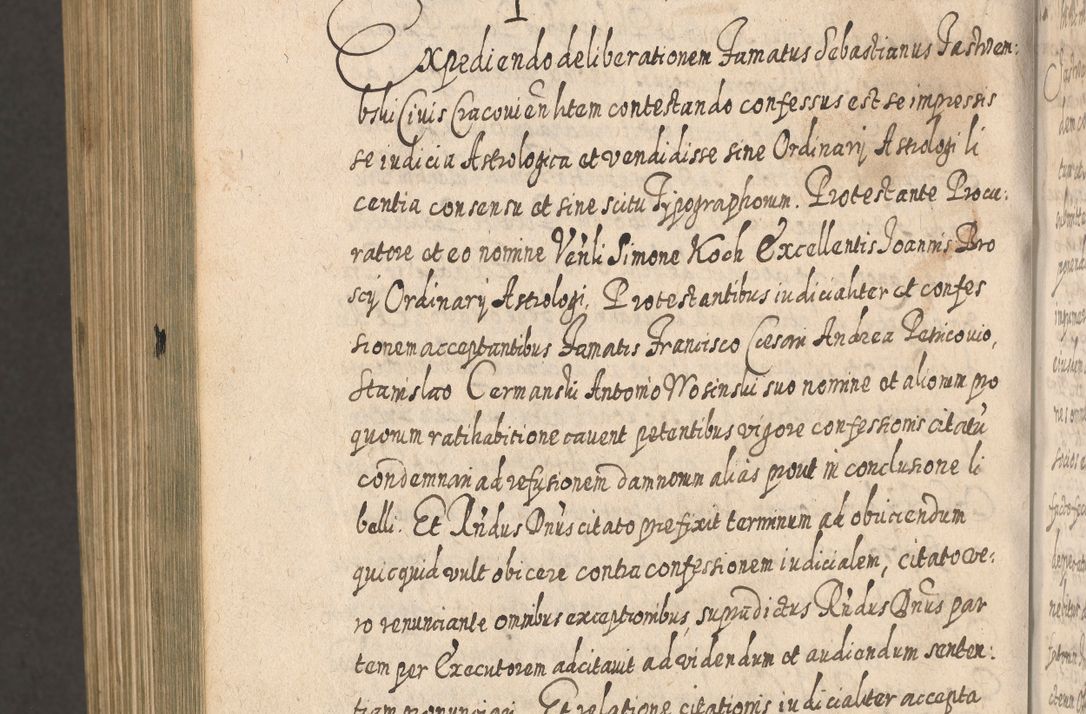 Expediendo deliberationem Famatus Sebastianus Jastrem:
bski Civis Cracovien̄ litem contestando confessus est se impressis
se iudicia Astrologica et vendidisse sine Ordinarij Astrologi li
centia consensu et sine scitu Typographorum. Protestante Procu:
ratore et eo nomine Venli Simone Koch Excellentis Joannis Bro
scij Ordinarij Astrologi. Protestantibus iudicialiter et confes
sionem acceptantibus Famatis Francisco Cæsari Andrea Petricovio,
Stanislao Cermanski Antonio Wosinski suo nomine et aliorum pro
quorum ratihabitione cavent petantibus vigore confessionis citatū
condemnari ad refusionem damnorum alias prout in conclusione li
belli. Et Rn̄dus Dn̄us citato prefixit terminum ad obiiciendum
quicquid vult obicere contra confessionem iudicialem, citato ve:
ro renunciante omnibus exceptionibus, supradictus Rn̄dus Dn̄us par
tem per Executorem adcitavit ad videndum et audiendum senten:
tiam pronunciari. Et relatione citationis iudicialiter accepta